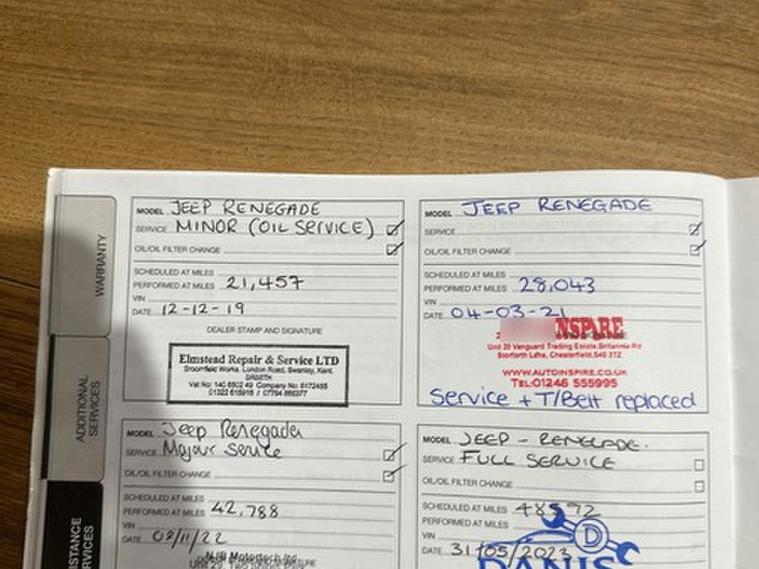 WARRANTY
MODEL JEEP RENEGADE
SERVICE MINOR (OIL SERVICE)
OIL/OIL FILTER CHANGE
SCHEDULED AT MILES
PERFORMED AT MILES 21,457
VIN
DATE 12-12-19
DEALER STAMP AND SIGNATURE
Elmstead Repair & Service LTD
Broomfield Works, London Road, Swanley, Kent.
MODEL JEEP RENEGADE
SERVICE
OIL/OIL FILTER CHANGE
SCHEDULED AT MILES
PERFORMED AT MILES 28,043
VIN
DATE 04-03-21
NSPIRE
Unit 20 Vanguard Trading Estate, Britannia Rd
Storforth Lane, Chesterfield, S40 2TZ
WWW.AUTOINSPIRE.CO.UK
TEL:01246 555995
Service + T/Belt replaced
ADDITIONAL
SERVICES
MODEL Jeep Renegade
SERVICE Majour Service
OIL/OIL FILTER CHANGE
SCHEDULED AT MILES
PERFORMED AT MILES 42,788
VIN
DATE 02/11/22
MODEL JEEP - RENEGADE.
SERVICE FULL SERVICE
OIL/OIL FILTER CHANGE
SCHEDULED AT MILES
PERFORMED AT MILES
VIN
DATE 31/05/2023
D
DANIS